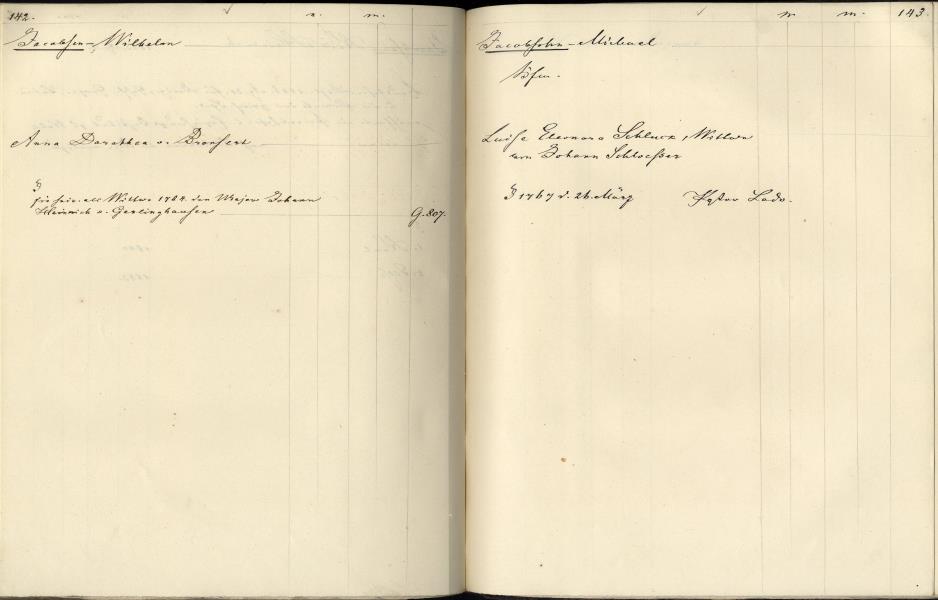 142.
v. m.
Jacobsen, Wilhelm
Anna Dorothea v. Bronsert
für sein als Wittwe 1784 den Major Johann
Heinrich v. Gerlinghausen G. 807.
m. m. 143.
Jacobsohn, Michael
Luise Eleonora Schlucz, Wittwe
von Johann Schloesser
1767 d. 26. März Pastor Lado.